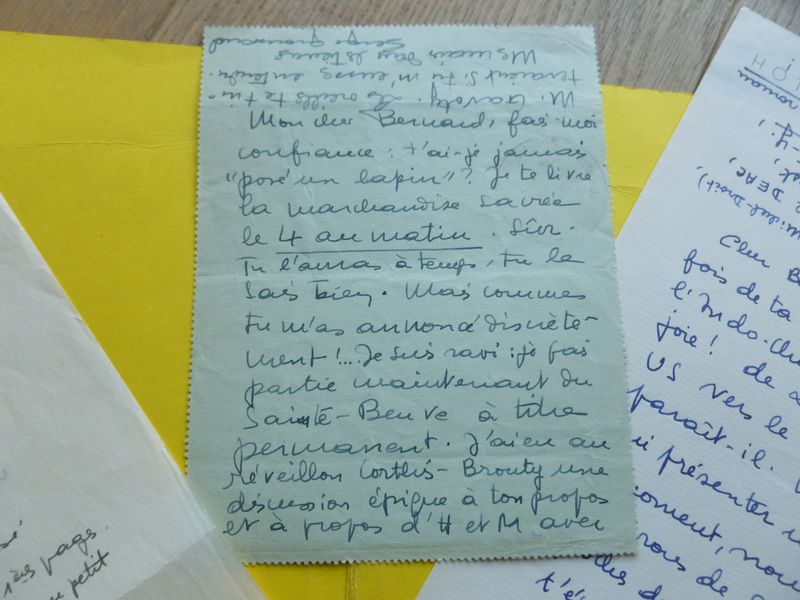 Mon cher Bernard, fais-moi
confiance : t'ai-je jamais
"posé un lapin" ? Je te livre
la marchandise sacrée
le 4 au matin. Sûr.
Tu l'auras à temps, tu le
sais bien. Mais comme
tu m'as annoncé discrète-
ment !... Je suis ravi : je fais
partie maintenant du
Sainte-Beuve à titre
permanent. J'ai eu au
réveillon Cortlis-Brouty une
discussion épique à ton propos
et à propos d'H et M avec
M. Gavoty. Les oreilles te tin-
teraient si tu m'eusses entendu.
Mes mains dans les tiennes
Serge
Cher B
fois de ta
l'Indo-Ch
joie ! de
US vers le
paraît-il.
présenter
nous
1ères pages.
petit
roman
DEAC,